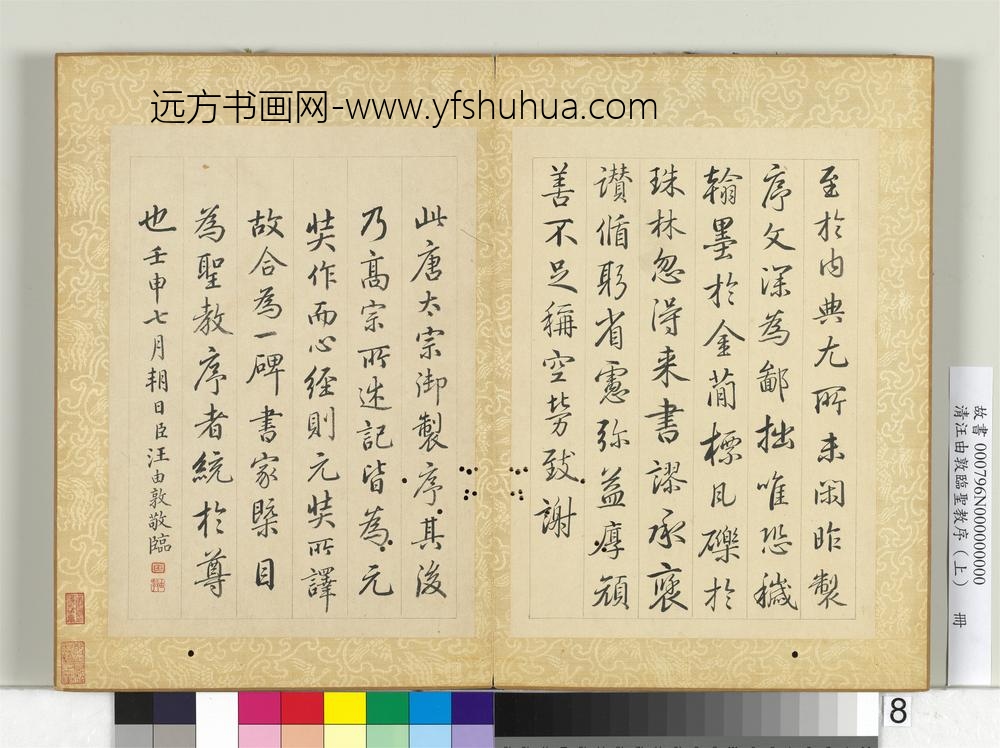 远方书画网-www.yfshuhua.com
至於内典尤所未闲昨製
序文深為鄙拙唯恐穢
翰墨於金蕳標瓦礫於
珠林忽淂来書謬承褒
讃循躬省慮弥益厚顔
善不足稱空勞致謝
此唐太宗御製序其後
乃髙宗所述記皆為元
奘作而心經則元奘所譯
故合為一碑書家槩目
為聖教序者統於尊
也 壬申七月朔日臣汪由敦敬臨
故書 000796N000000000
清汪由敦臨聖教序（上） 冊
8